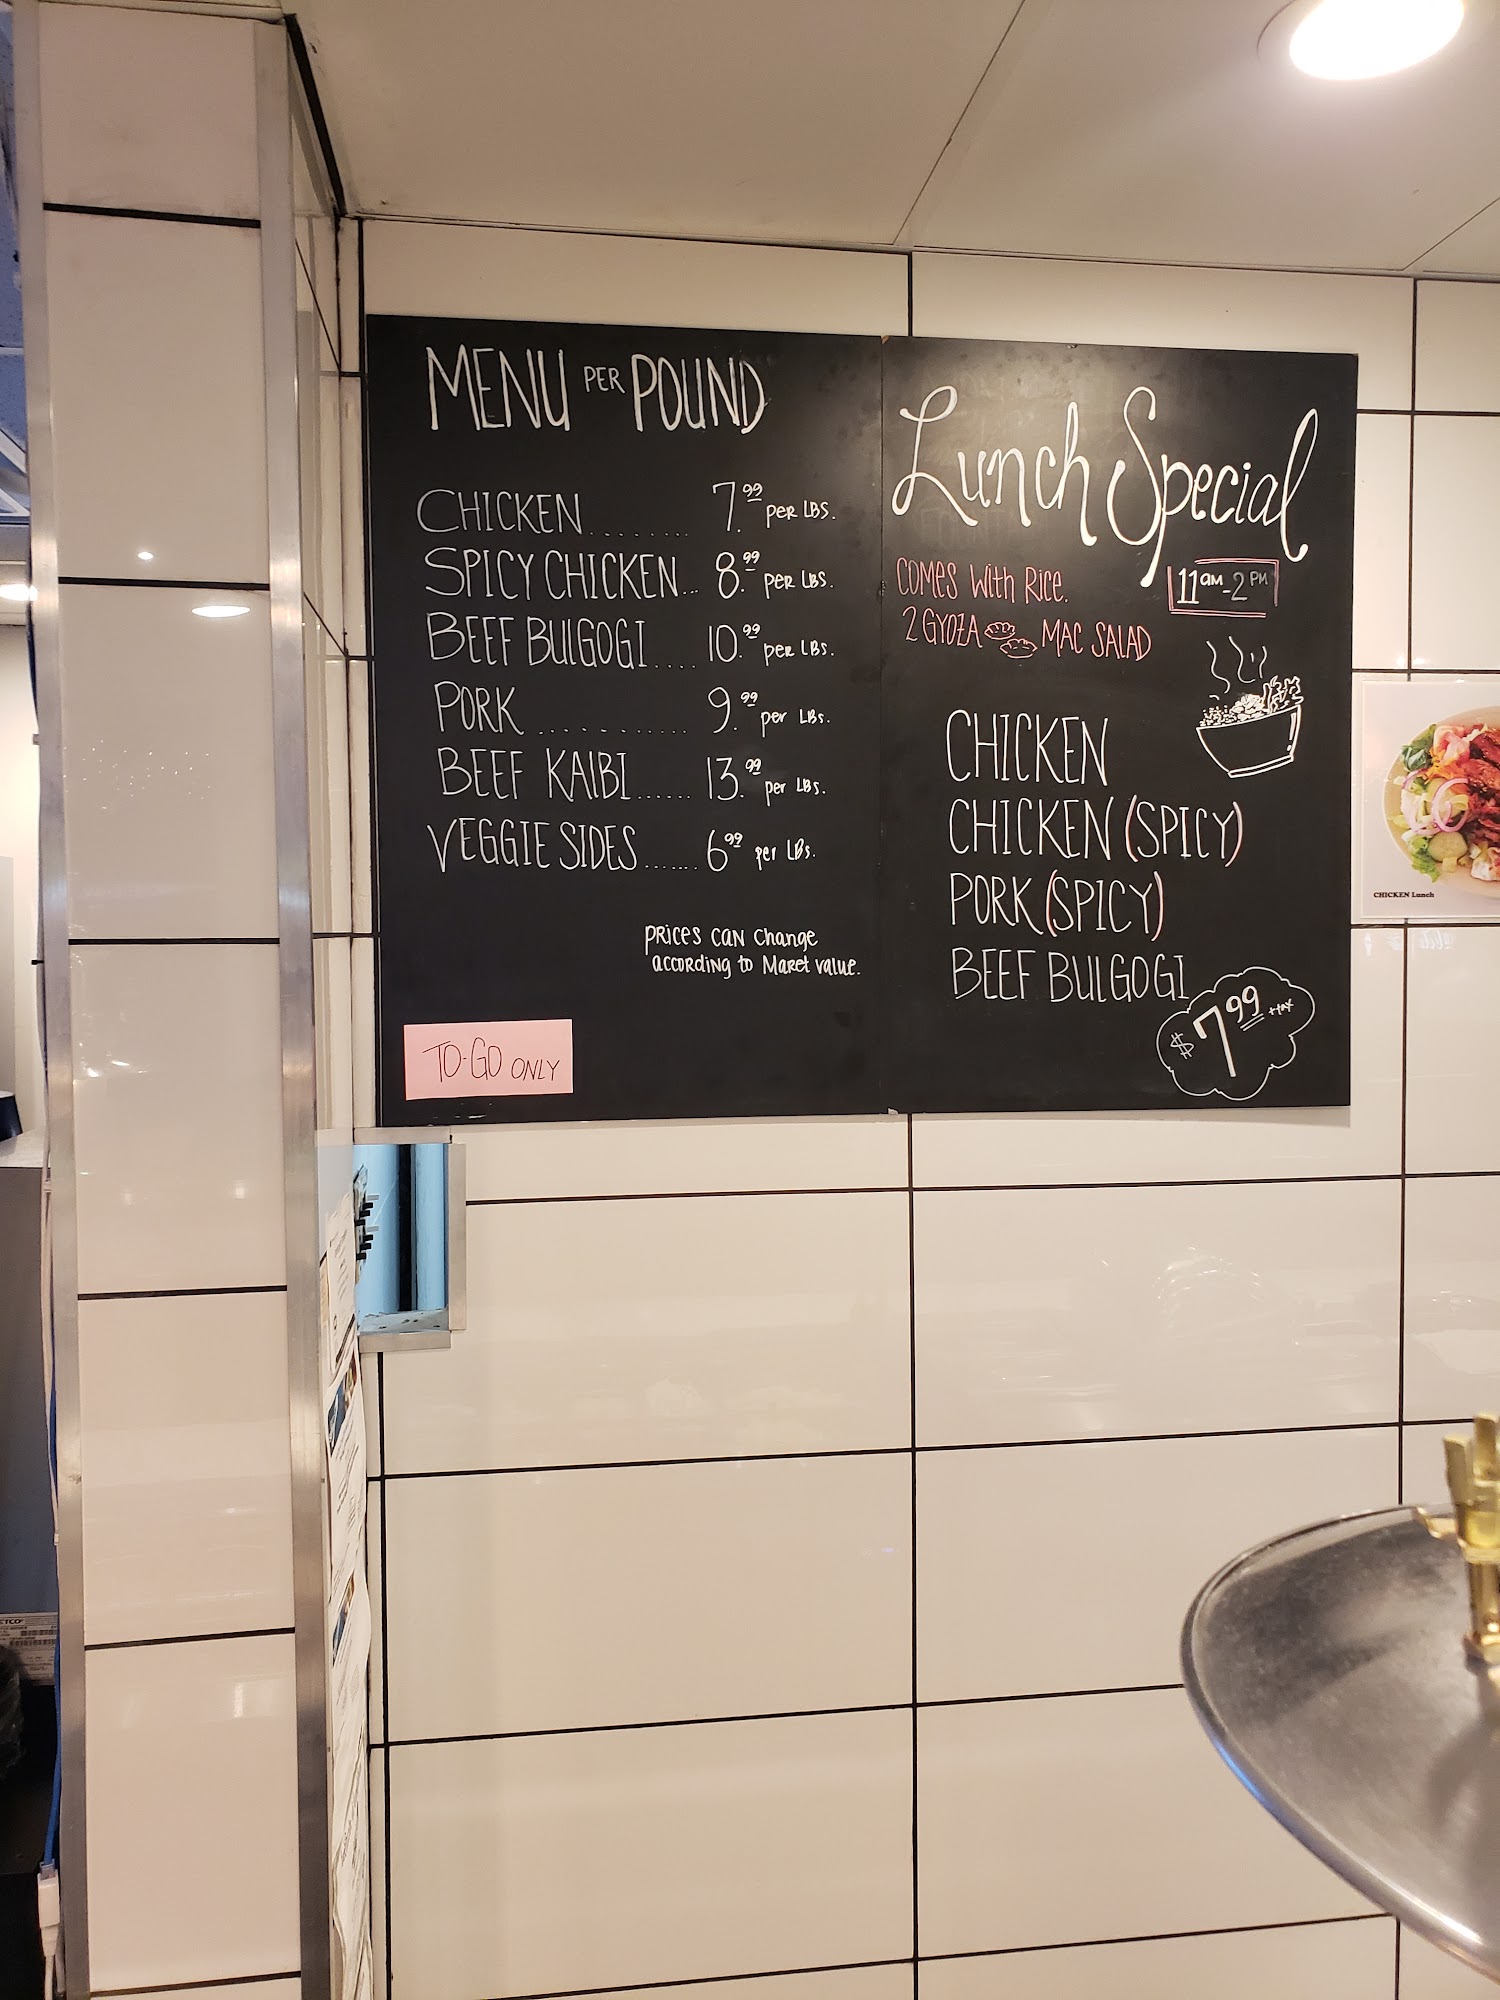 MENU PER POUND
CHICKEN........ 7.99 per LBS.
SPICY CHICKEN... 8.99 per LBS.
BEEF BULGOGI.... 10.99 per LBS.
PORK ........... 9.99 per LBS.
BEEF KALBI...... 13.99 per LBS.
VEGGIE SIDES....... 6.99 per LBs.
PRICES CAN Change
according to Maret value.
TO-GO ONLY
Lunch Special
11am-2PM
COMES With RICE.
2 GYOZA MAC SALAD
CHICKEN
CHICKEN (SPICY)
PORK (SPICY)
BEEF BULGOGI
$7.99 +tax
CHICKEN Lunch